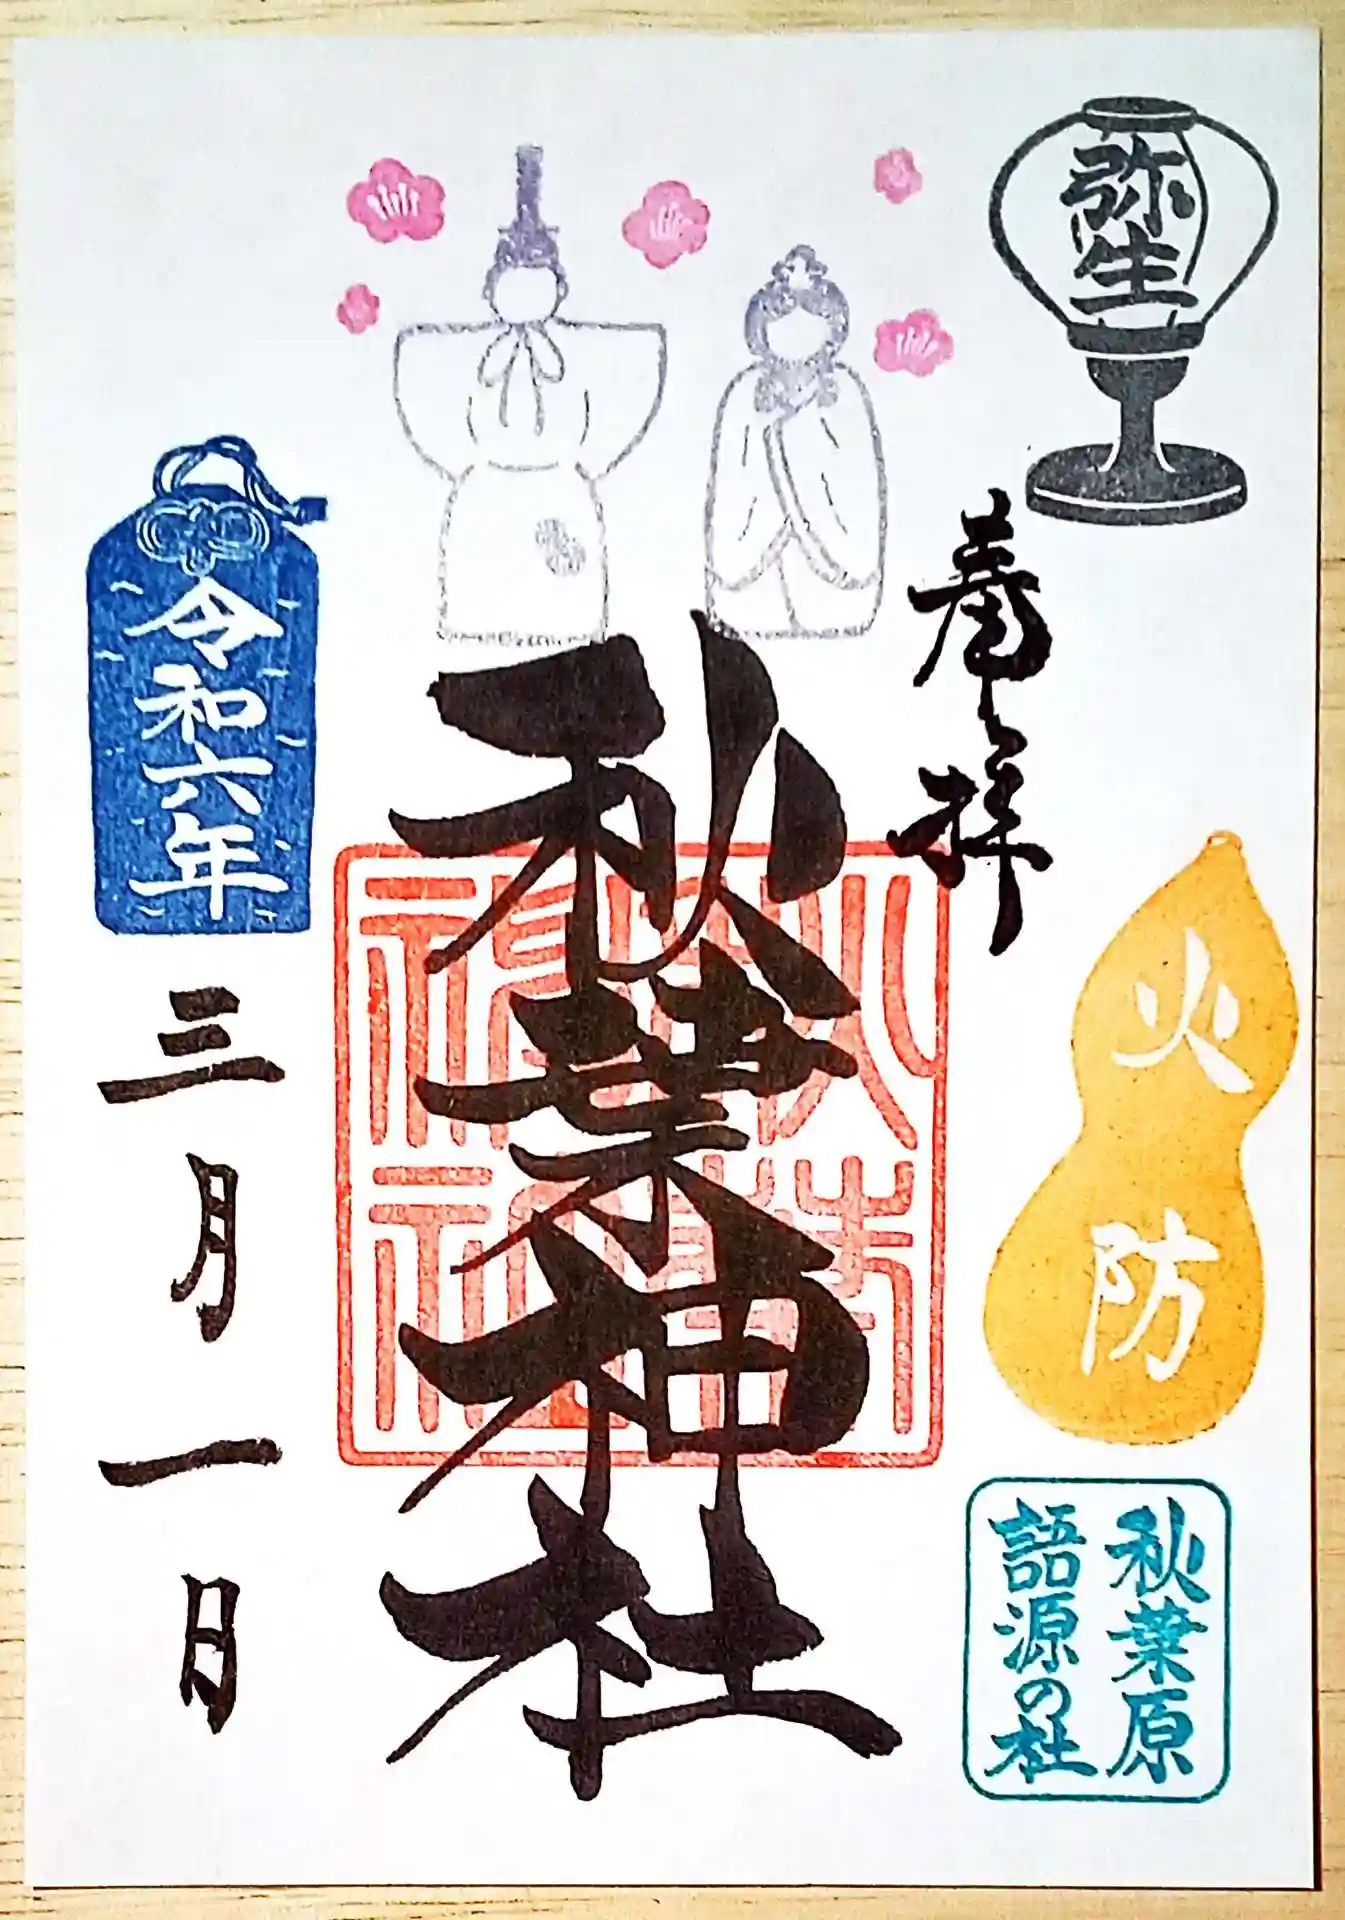 弥生
奉拝
火防
秋葉原
語源の杜
秋葉神社
令和六年
三月一日